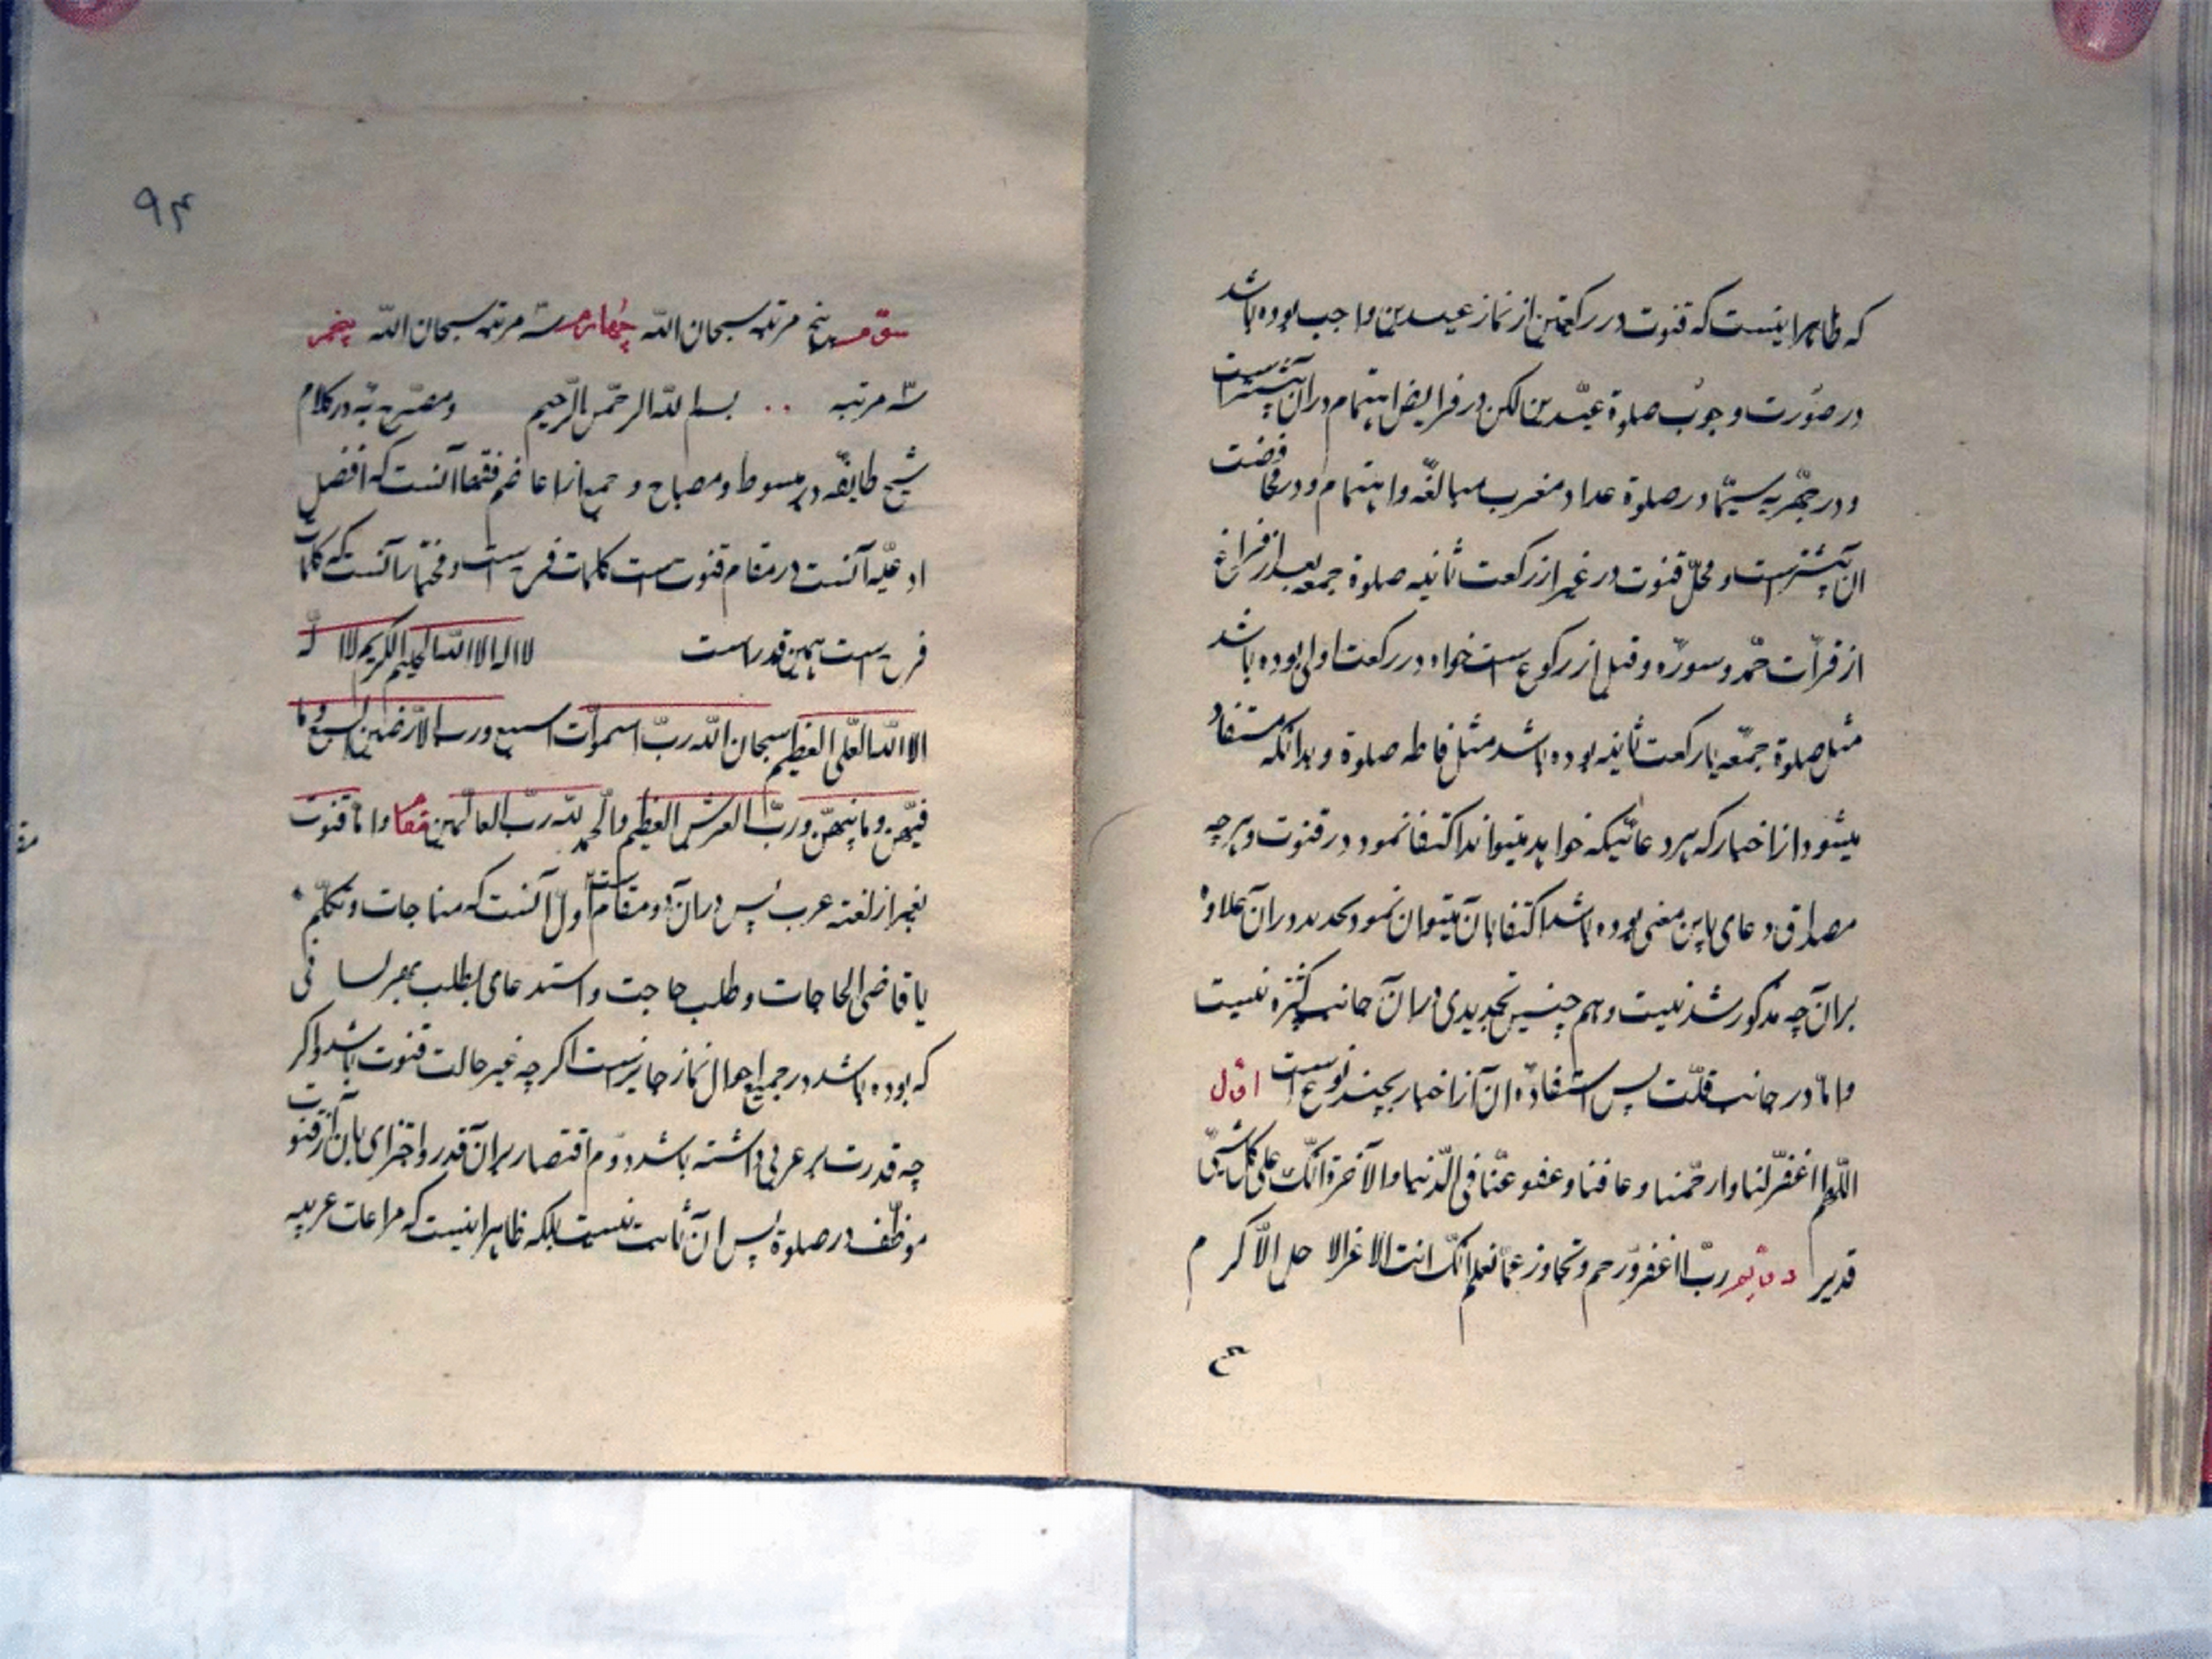 که ظاهر اینست که قنوت در رکعتین از نماز عیدین واجب بوده باشد
در صورت وجوب صلوة عیدین لکن در فرایض اهتمام در آن بیشتر است
و در جهریه سیما در صلوة غداة و مغرب مبالغه و اهتمام و در محافضت
ان بیشتر است و محل قنوت در غیر از رکعت ثانیه صلوة جمعه بعد از فراغ
از قرائت حمد و سوره و قبل از رکوع است خواه در رکعت اولی بوده باشد
مثل صلوة جمعه یا رکعت ثانیه بوده باشد مثل صلوة و بدانکه مستفاد
میشود از اخبار که هر دعائیکه خواهد میتواند اکتفا نمود در قنوت و هر چه
مصداق دعای باین معنی بوده باشد اکتفا بان میتوان نمود تحدید در ان علاوه
بر آن چه مذکور شد نیست و هم چنین تحدیدی در آن جانب کثره نیست
و اما در جانب قلت پس استفاده ان از اخبار بچند نوع است اول
اللهم اغفر لنا وارحمنا وعافنا وعفو عنا فی الدنیا والآخرة انک علی کل شیئ
قدیر دویم رب اغفر ورحم وتجاوز عما تعلم انک انت الاعز الا جل الاکرم
سوم پنج مرتبه سبحان الله چهارم سه مرتبه سبحان الله پنجم
سه مرتبه بسم الله الرحمن الرحیم و مصرح به در کلام
شیخ طایفه در مبسوط و مصباح و جمیع از اعاظم فقها آنست که افضل
ادعیه آنست در مقام قنوت است کلمات فرج است و مختار آنست که کلمات
فرج است همین قدر است لا اله الا الله الحلیم الکریم لا اله
الا الله العلی العظیم سبحان الله رب السموات السبع ورب الارضین السبع وما
فیهن وما بینهن ورب العرش العظیم والحمد لله رب العالمین مقام و اما قنوت
بغیر از لغة عرب پس در آن دو مقام است اول آنست که مناجات و تکلم
یا قاضی الحاجات و طلب حاجت و استدعای مطلب بهر لسانی
که بوده باشد در جمیع احوال نماز جایز است اگر چه غیر حالت قنوت باشد و اگر
چه قدرت بر عربی داشته باشد دوم اقتصار بر آن قدر و اجزای بان از قنوت
موظف در صلوة پس ان ثابت نیست بلکه ظاهر اینست که مراعات عربیه